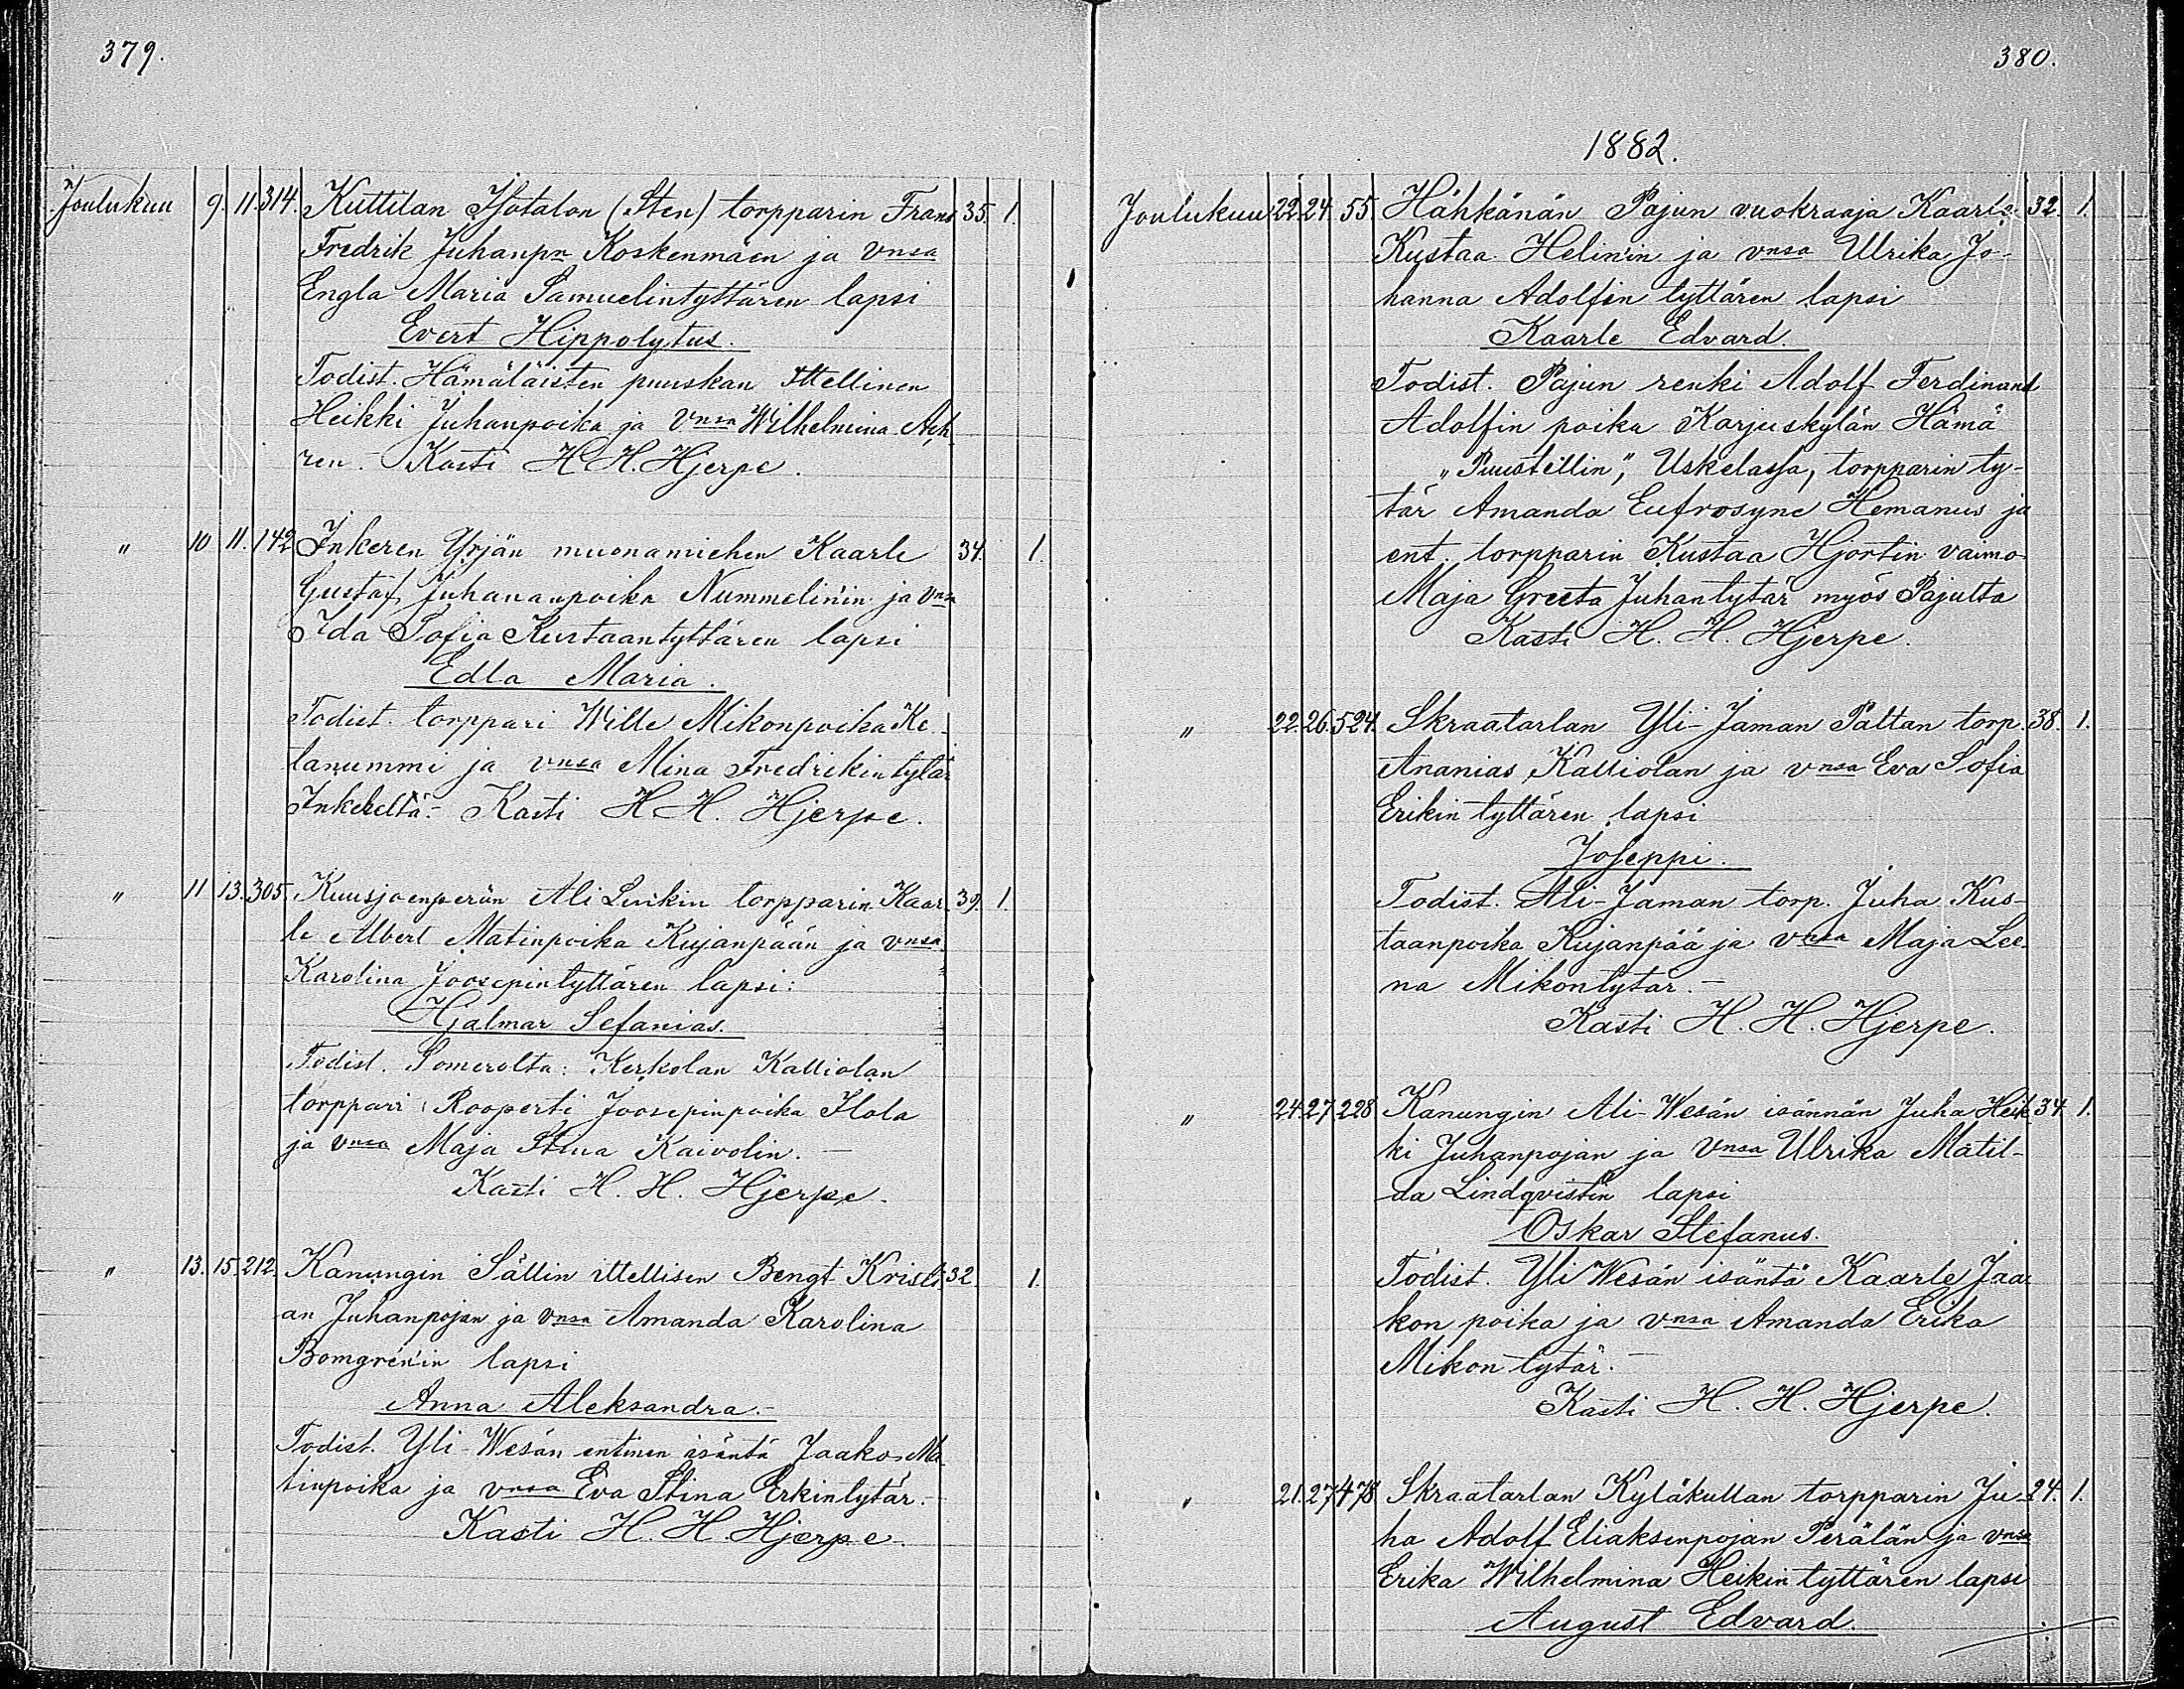 379.
Joulukuu 9. 11. 314. Kuttilan Isotalon (Sten) torpparin Frans 35. 1.
Fredrik Juhanpn Koskenmäen ja vnsa
Engla Maria Samuelintyttären lapsi
Evert Hippolytus.
Todist. Hämäläisten puuskan Ittellinen
Heikki Juhanpoika ja vnsa Wilhelmina
ren. - Kasti H. H. Hjerpe.
" 10 11. 142 Inkeren Yrjän muonamiehen Kaarle 34. 1.
Gustaf Juhananpoika Nummelin'in ja vnsa
Ida Sofia Kustaantyttären lapsi
Edla Maria.
Todist. torppari Wille Mikonpoika Ke-
tanummi ja vnsa Mina Fredrikintytär
Inkereltä. - Kasti H. H. Hjerpe.
" 11 13. 305. Kuusjoenperän Ali Luikin torpparin Kaar- 39. 1.
le Albert Matinpoika Kujanpään ja vnsa
Karolina Joosepintyttären lapsi:
Hjalmar Sefanias.
Todist. Somerolta: Kerkolan Kalliolan
torppari Rooperti Joosepinpoika Ilola
ja vnsa Maja Stina Kaivolin. -
Kasti H. H. Hjerpe.
" 13. 15. 212. Kanungin Sällin ittellisen Bengt Kristi- 32. 1.
an Juhanpojan ja vnsa Amanda Karolina
Bomgrén'in lapsi
Anna Aleksandra. -
Todist. Yli-Wesän entinen isäntä Jaako Ma-
tinpoika ja vnsa Eva Stina Erkintytär. -
Kasti H. H. Hjerpe.
380.
1882.
Joulukuu 22. 24. 55. Hähkänän Pajun vuokraaja Kaarle 32. 1.
Kustaa Helin'in ja vnsa Ulrika Jo-
hanna Adolfin tyttären lapsi
Kaarle Edvard.
Todist. Pajun renki Adolf Ferdinand
Adolfin poika Karjaskylän Hämä
"Puustellin", Uskelassa, torpparin ty-
tär Amanda Eufrosyne Hemanus ja
ent. torpparin Kustaa Hjortin vaimo
Maja Greeta Juhantytär myös Pajulta
Kasti H. H. Hjerpe.
" 22. 26. 524. Skraatarlan Yli-Jaman Paltan torp. 38. 1.
Ananias Kalliolan ja vnsa Eva Sofia
Erikin tyttären lapsi
Joseppi.
Todist. Ali-Jaman torp. Juha Kus-
taanpoika Kujanpää ja vnsa Maja Lee-
na Mikontytär. -
Kasti H. H. Hjerpe.
" 24. 27. 228 Kanungin Ali-Wesän isännän Juha Heik- 34. 1.
ki Juhanpojan ja vnsa Ulrika Matil-
da Lindqvistin lapsi
Oskar Stefanus.
Todist. Yli Wesän isäntä Kaarle Jaa-
kon poika ja vnsa Amanda Erika
Mikon tytär. -
Kasti H. H. Hjerpe.
" 21. 27 478 Skraatarlan Kyläkullan torpparin Ju- 24. 1.
ha Adolf Eliaksenpojan Perälän ja vnsa
Erika Wilhelmina Heikin tyttären lapsi
August Edvard.